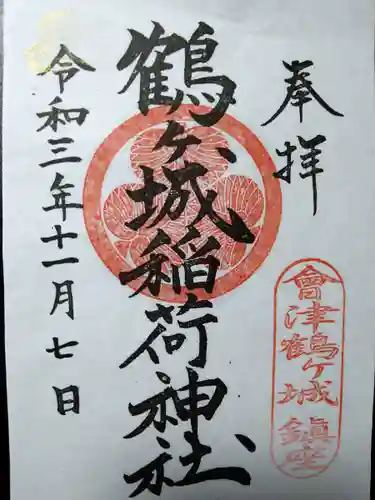 奉拝
鶴ヶ城稲荷神社
令和三年十一月七日
會津鶴ヶ城鎮座